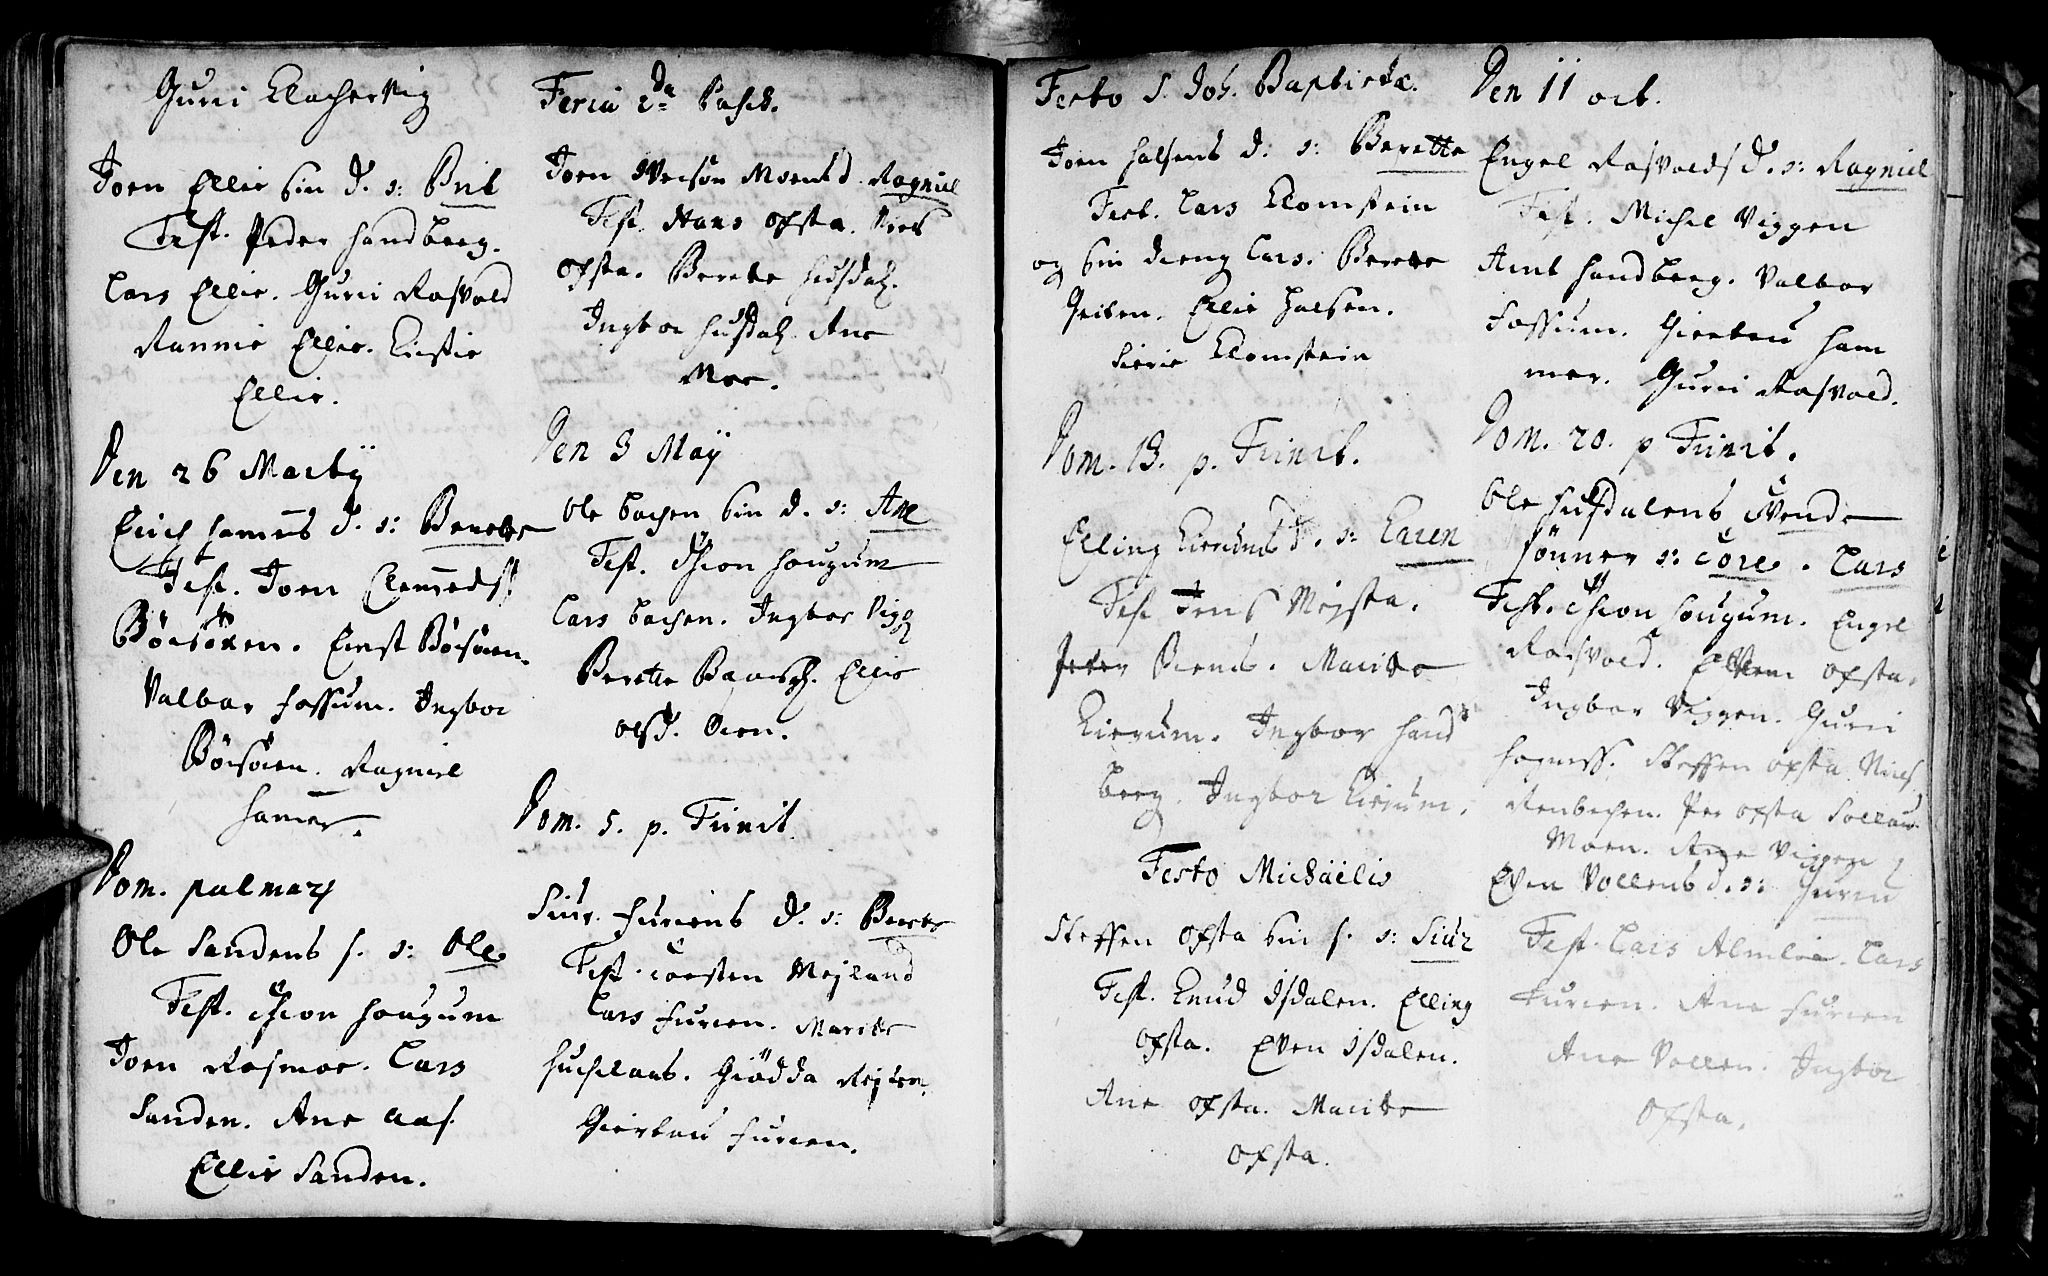 Guri Klochervig
Joen Ellie bin d. s: Brit
Test. Peder Handberg.
Lars Ellie. Guri Rasvold
Rannie Ellie. Kirstie
Ellie.
Den 26 Martij
Erich Hamers d. s: Berette
Test. Joen Clemmeds
Börsöien. Ernst Börsöien.
Valbor Fossum. Ingbor
Börsöien. Ragniel
Hamer.
Dom. palmar
Ole Sandens s. s: Ole
Test. Thron Hougum
Joen Rasmoe. Lars
Sanden. Ane Aas
Ellie Sanden.
Feria 2da Pasch.
Joen Moens d. Ragniel
Test. Hans Ofsta. Niels
Ofsta. Berete Husdal.
Ingbor Husdal. Ane
Moe.
Den 3 Maij
Ole bachen bin d. s: Ane
Test. Thron Hougum
Lars bachen. Ingbor Vigg
Berette Ellie
Olsd. Oien.
Dom. 5. p. Trinit.
Siur. Furiens d. s: Berete
Test. Torsten Mejland
Lars Furien. Marite
Giödda
Giertru Furien.
Festo S. Joh. Baptistæ.
Joen Halsens d: s: Berette
Test. Lars Klomstein
og bin dreng Lars. Berete
Ellie Halsen.
Sirie Klomstein
Dom. 13. p. Trinit.
Elling Lierums d. s: Karen
Test Jens Mejsta.
Peder Marite
Lierum. Ingbor Hand
berg. Ingbor Lierum.
Festo Michaelis
Steffen Ofsta bin s. s: Siur
Test. Knud Isdalen. Elling
Ofsta. Even Isdalen.
Ane Ofsta. Marite
Ofsta.
Den 11 oct.
Engel Rasvolds d. s: Ragniel
Test. Michel Viggen
Arnt Handberg. Valbor
Fossum. Giertru Ham
mer. Guri Rasvold.
Dom. 20. p Trinit.
Ole Husdalens tvende
sönner s: Tore. Lars
Test. Thron Hougum. Engel
Rasvold. Ofsta.
Ingbor Viggen. Guri
Steffen Ofsta. Niels
Per Ofsta
Moen. Ane Viggen
Even Vollens d. s: Guru
Test. Lars Almlie. Lars
Furien. Ane Furien
Ane Vollen. Ingbor
Ofsta.